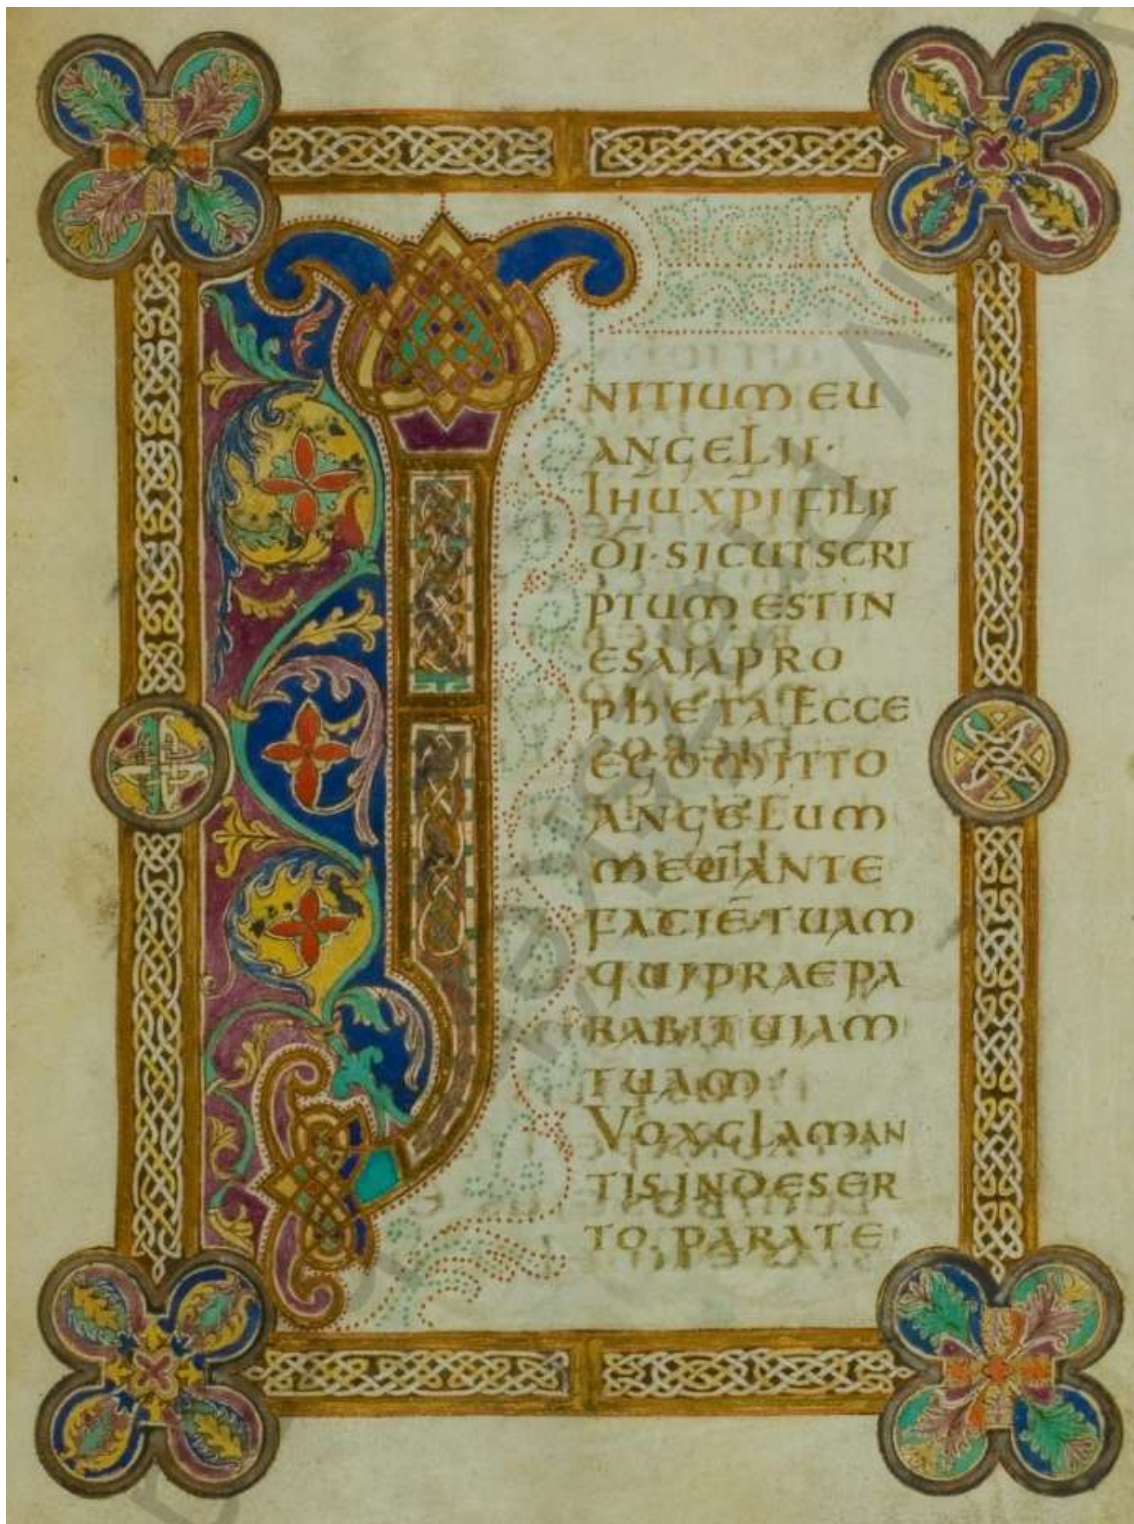 I
NITIUM EU
ANGELII·
IHU XPI FILII
DI·SICUT SCRI
PTUM EST IN
ESAIA PRO
PHETA ECCE
EGO MITTO
ANGELUM
MEŪ ANTE
FACIĒ TUAM
QUI PRAEPA
RABIT UIAM
TUAM
VOX CLAMAN
TIS IN DESER
TO. PARATE